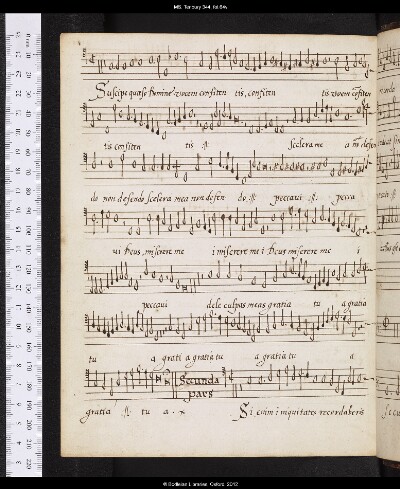 MS. Tenbury 344, fol. 54v
Suscipe quæso Domine vocem confiten tis, confiten tis vocem cofiten
tis confiten tis Scelera me a nō defen
do non defendo scelera mea non defen do peccavi pecca
vi Deus, miserere me i miserere me i Deus miserere me i
peccavi dele culpas meas gratia tu a gratia
tu a grati a gratia tu a gratia tu a
Secunda
pars
gratia tu a. Si enim iniquitates recordaberis
© Bodleian Libraries, Oxford, 2012